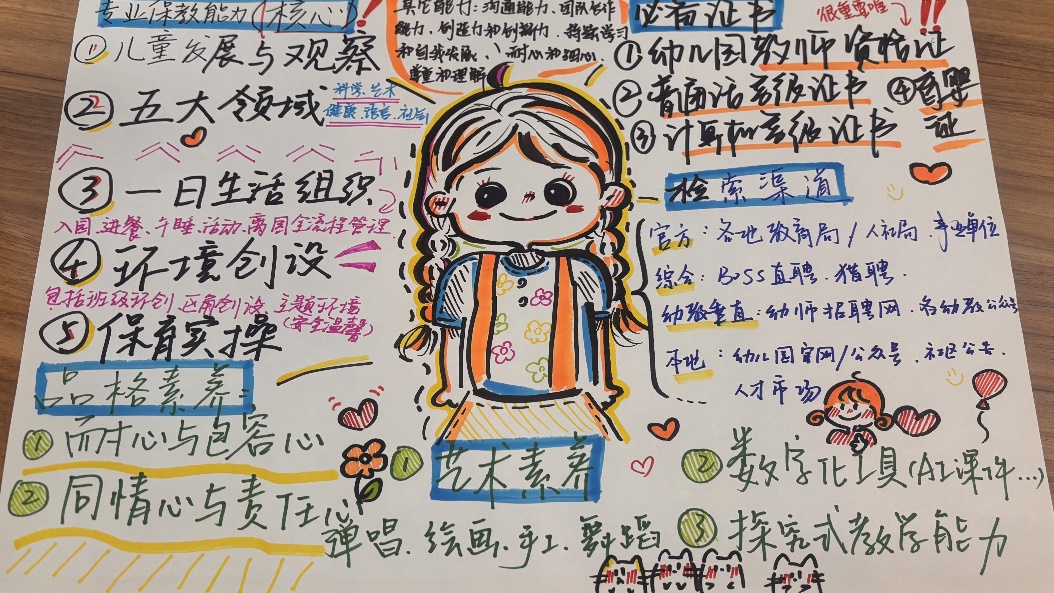 专业保教能力(核心)!
① 儿童发展与观察
② 五大领域
科学.艺术
健康.语言.社会
③ 一日生活组织
入园.进餐.午睡.活动.离园全流程管理
④ 环境创设
包括班级环创.区角创设.主题环境
(安全温馨)
⑤ 保育实操
品格素养:
① 耐心与包容心
② 同情心与责任心
其它能力:沟通能力.团队合作
能力.创造力和创新力.持续学习
和自我发展、耐心和细心.
尊重和理解
必备证书
很重要喔
!!
① 幼儿园教师资格证
② 普通话等级证书
③ 计算机等级证书
④ 育婴
证
检索渠道
官方:各地教育局/人社局.事业单位
综合:BOSS直聘.猎聘.
幼教垂直:幼师招聘网.各幼教公众号
本地:幼儿园官网/公众号.社区公告.
人才市场
① 艺术素养
弹唱.绘画.手工.舞蹈
② 数字化工具(AI课件...)
③ 探究式教学能力